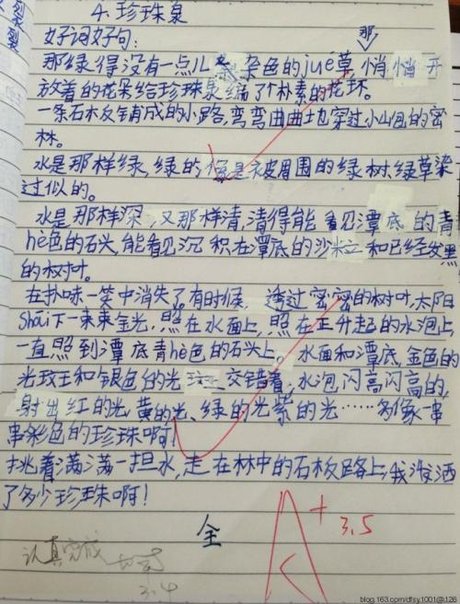 4. 珍珠泉
好词好句:
那
那绿得没有一点儿杂色的jué草,悄悄开
放着的花朵给珍珠泉编了个朴素的花环。
一条石板铺成的小路,弯弯曲曲地穿过小山包的密
林。
水是那样绿,绿的像是被周围的绿树、绿草染
过似的。
水是那样深,又那样清,清得能看见潭底的青
hè色的石头,能看见沉积在潭底的沙粒和已经发黑
的树叶。
在扑哧一笑中消失了有时候,透过密密的树叶,太阳
Shāi下一束束金光,照在水面上,照在正升起的水泡上
一直照到潭底青hè色的石头上。水面和潭底,金色的
光斑和银色的光斑交错着;水泡闪亮闪亮的,
射出红的光、黄的光、绿的光紫的光……多像一串
串彩色的珍珠啊!
挑着满满一担水,走在林中的石板路上,我泼洒
了多少珍珠啊!
全
A+
3.5
认真完成
3.4
blog.163.com/dfsy.1001@126